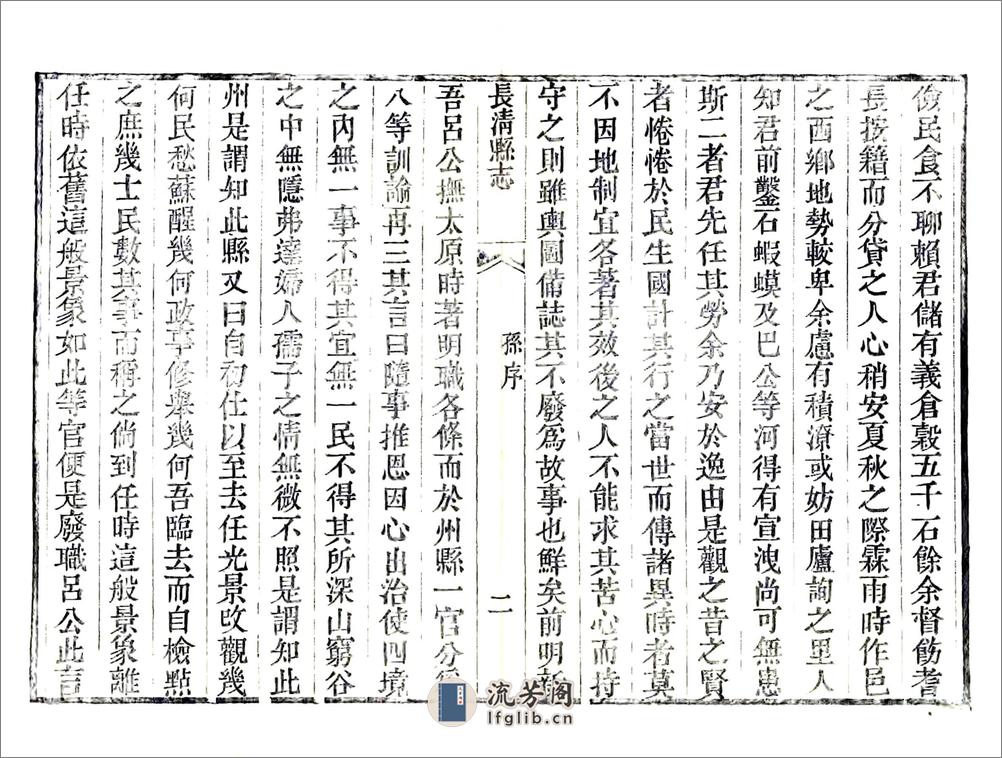 儉民食不聊賴君儲有義倉穀五千石餘余督飭耆
長按籍而分貸之人心稍安夏秋之際霖雨時作邑
之西鄉地勢較卑余慮有積潦或妨田廬詢之里人
知君前鑿石蝦蟆及巴公等河得有宣洩尚可無患
斯二者君先任其勞余乃安於逸由是觀之昔之賢
者惓惓於民生國計其行之當世而傳諸異時者莫
不因地制宜各著其效後之人不能求其苦心而持
守之則雖輿圖備誌其不廢為故事也鮮矣前明新
長清縣志
孫序
二
吾呂公撫太原時著明職各條而於州縣一官分為
八等訓諭再三其言曰隨事推恩因心出治使四境
之內無一事不得其宜無一民不得其所深山窮谷
之中無隱弗達婦人孺子之情無微不照是謂知此
州是謂知此縣又曰自初仕以至去任光景改觀幾
何民愁蘇醒幾何政事修舉幾何吾臨去而自檢點
之庶幾士民數其事而稱之倘到任時這般景象離
任時依舊這般景象如此等官便是廢職呂公此言
流芳阁
lfglib.cn